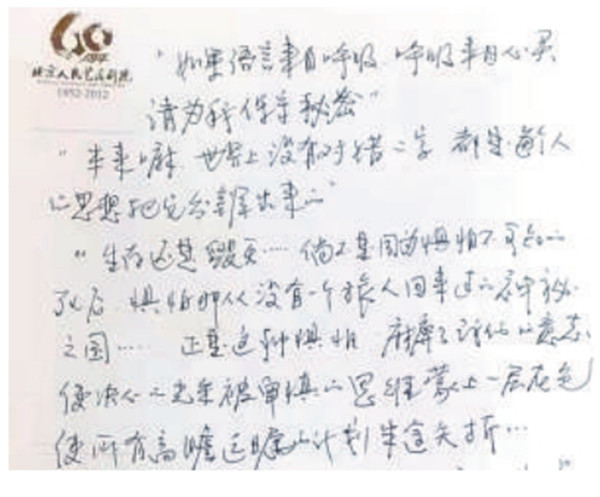 60
北京人民艺术剧院
1952-2012
"如果语言来自呼吸 呼吸来自心灵
请为我保守秘密"
"本来嘛 世界上没有对于错二字 都是通人
的思想把它分辨出来的"
"生存还是毁灭……倘不是因为惧怕不可知的
死后 惧怕那从没有一个旅人回来过的神秘
之国…… 正是这种惧怕 麻痹了我们的意志
使决心的光荣被审慎的思维蒙上一层灰色
使所有高瞻远瞩的计划半途夭折…